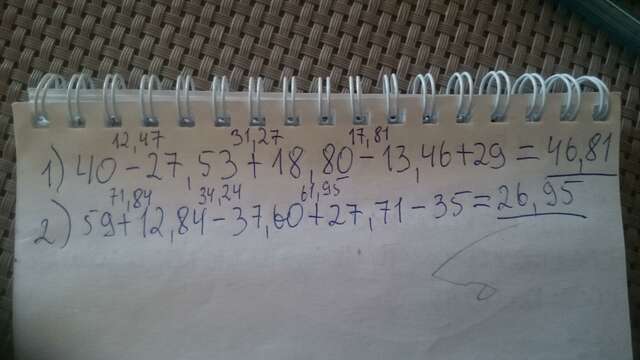 12,47 31,27 17,81
1) 40-27,53+18,80-13,46+29=46,81
71,84 34,24 61,95
2) 59+12,84-37,60+27,71-35=26,95